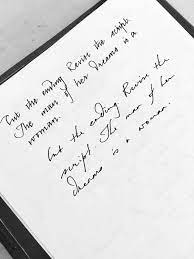 Cut the ending. Revise the script.
The man of her dreams is a
woman.
Cut the ending. Revise the
script. The man of her
dreams is a woman.